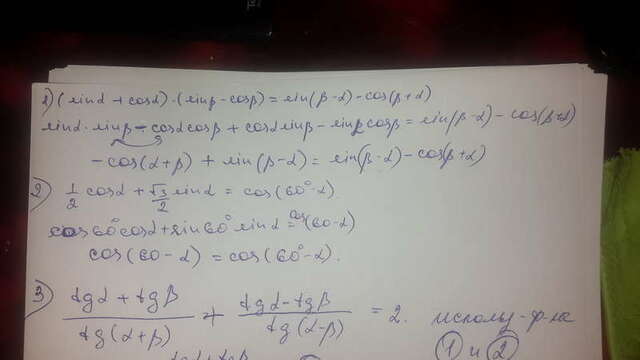 1) (sinα + cosα)·(sinβ - cosβ) = sin(β-α) - cos(β+α)
sinα·sinβ - cosα cosβ + cosα sinβ - sinβ cosβ = sin(β-α) - cos(β+α)
- cos(α+β) + sin(β-α) = sin(β-α) - cos(β+α)
2) 1/2 cosα + √3/2 sinα = cos(60°-α).
cos60°cosα + sin60° sinα = cos(60-α)
cos(60-α) = cos(60°-α).
3) (tgα + tgβ)/(tg(α+β)) + (tgα - tgβ)/(tg(α-β)) = 2. использ-ф-ла
① и ②